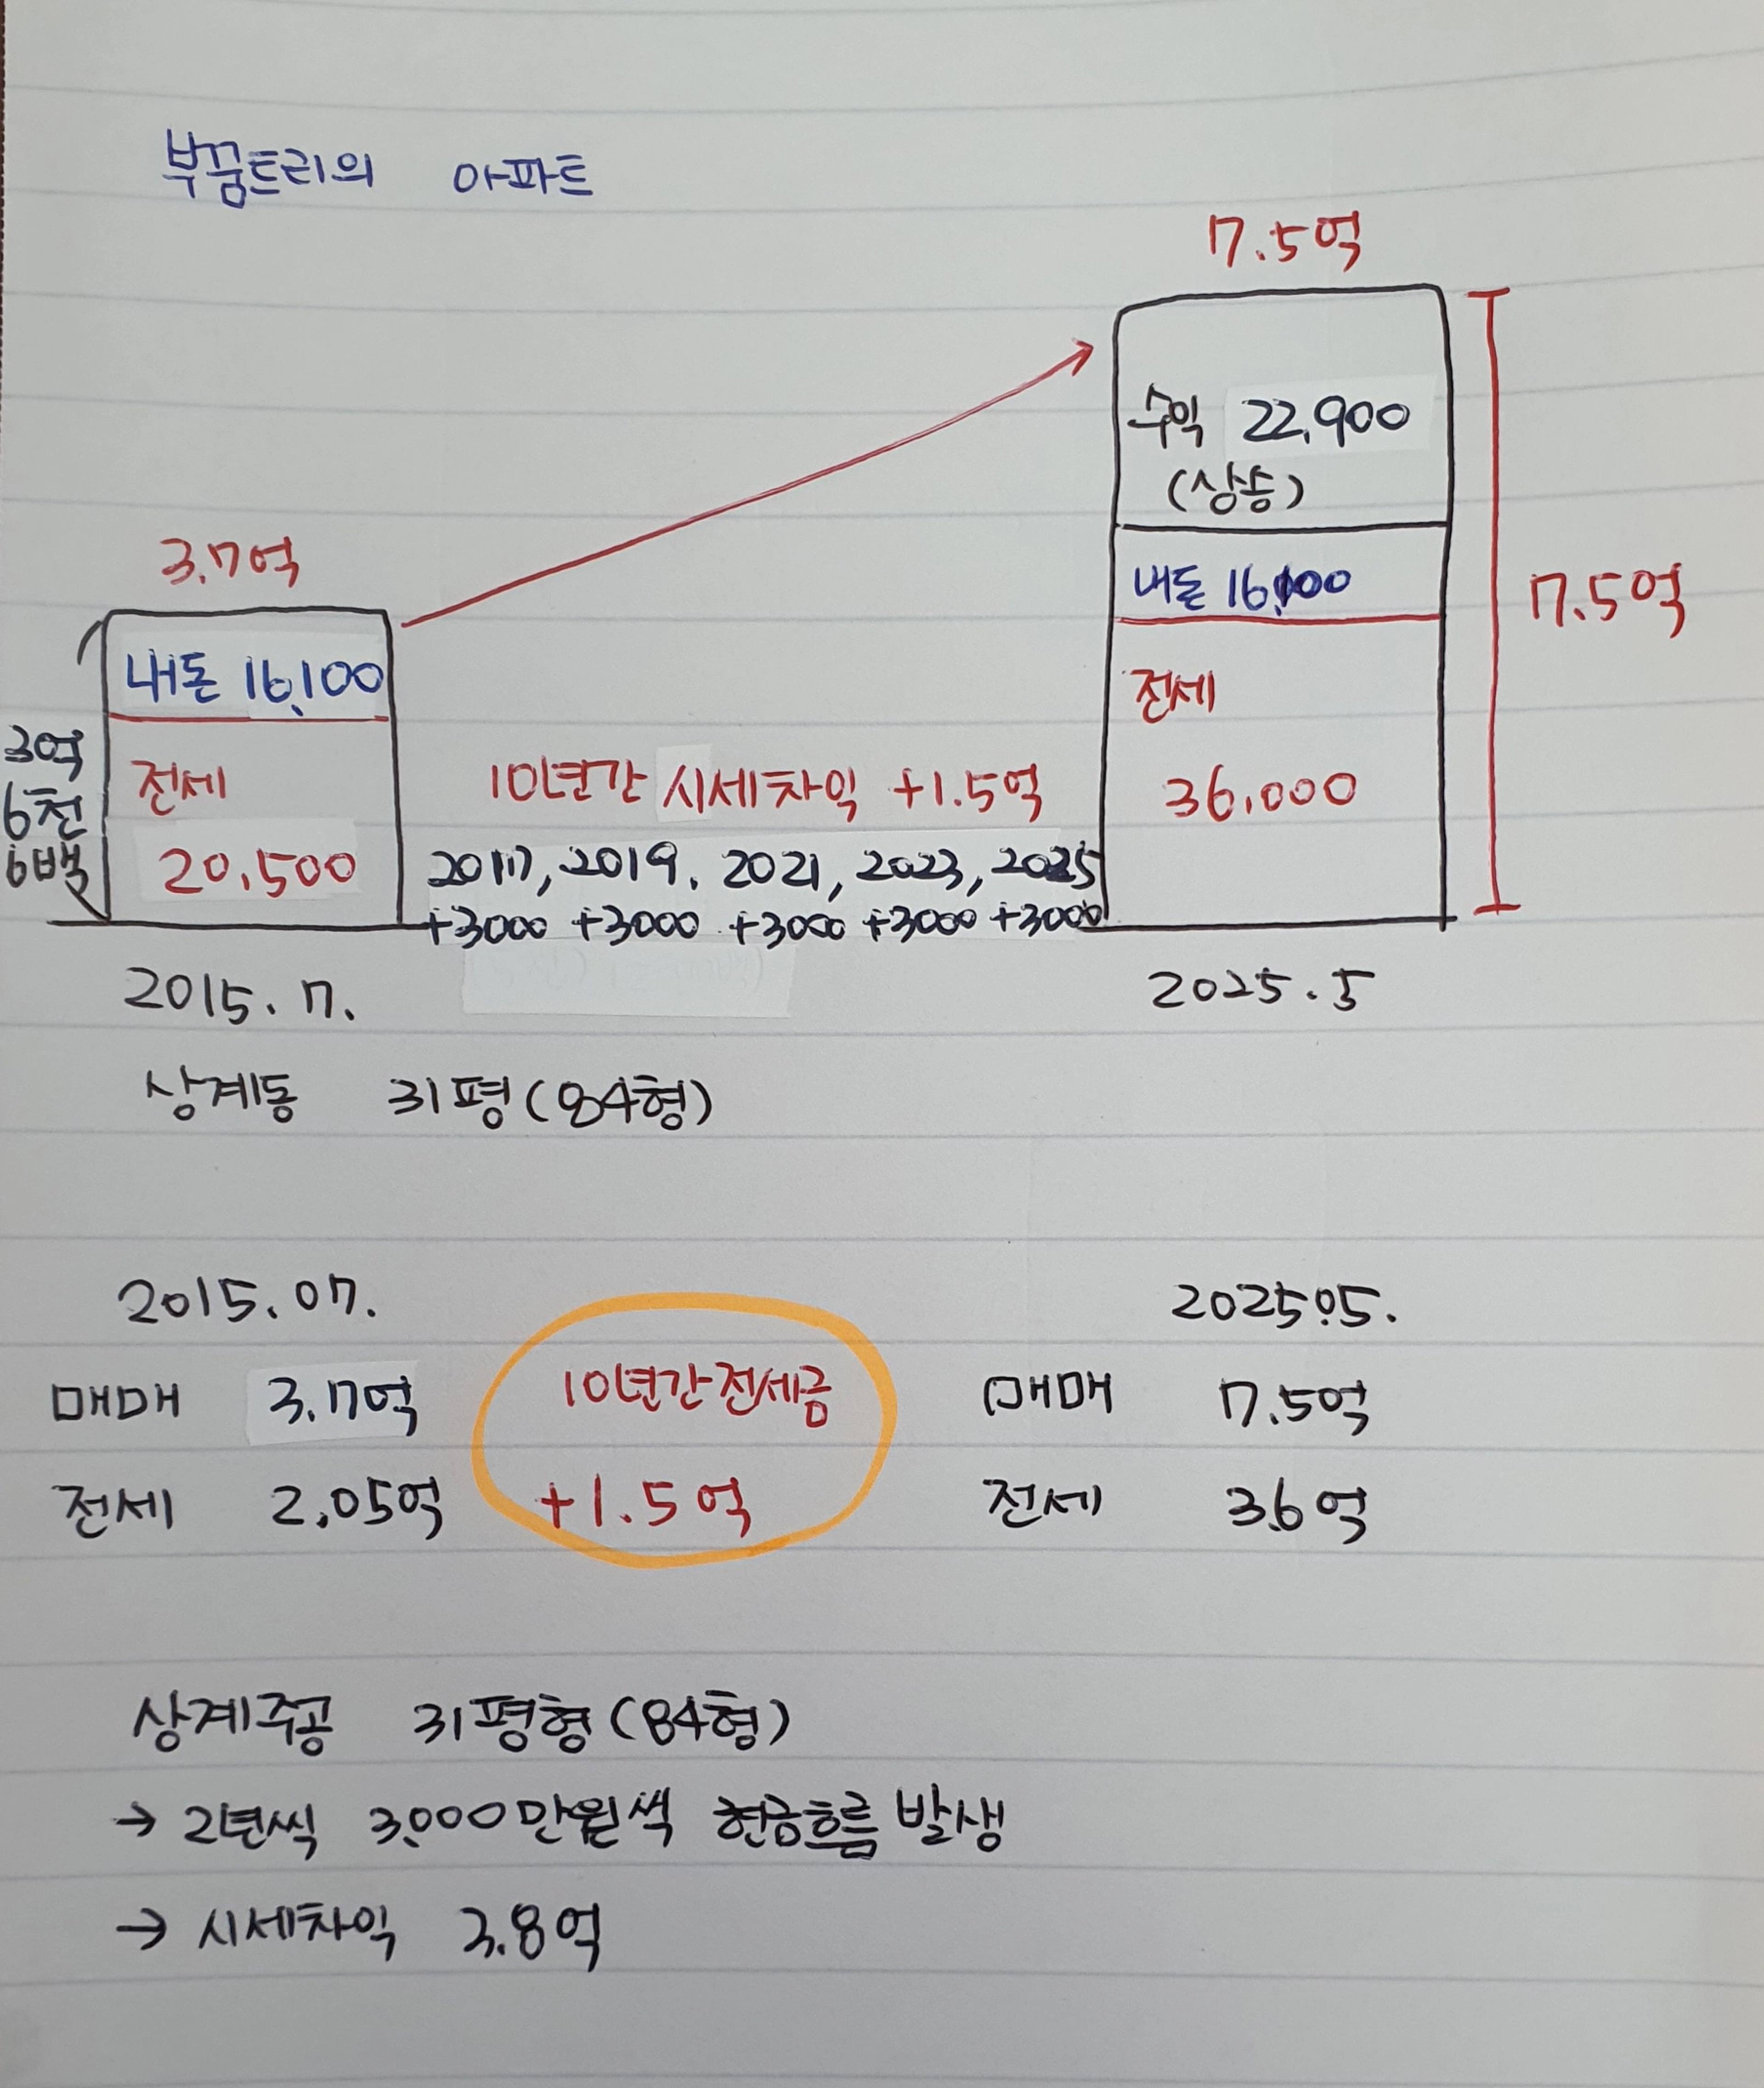 부꿈트리의 아파트
17.5억
수익 22,900
(상승)
3.7억
내돈 16,100
7.5억
내돈 16,100
전세
3억
6천
6백
전세
10년간 시세차익 +1.5억
36,000
20,500
2017, 2019. 2021, 2023, 2025
+3000 +3000 +3000 +3000 +3000
2015. 7.
2025. 5
상계동 31평(84형)
2015. 07.
2025.05.
매매 3.7억
10년간 전세금
매매 7.5억
전세 2.05억
+1.5억
전세 3.6억
상계주공 31평형(84형)
→ 2년씩 3,000만원씩 현금흐름 발생
→ 시세차익 3.8억